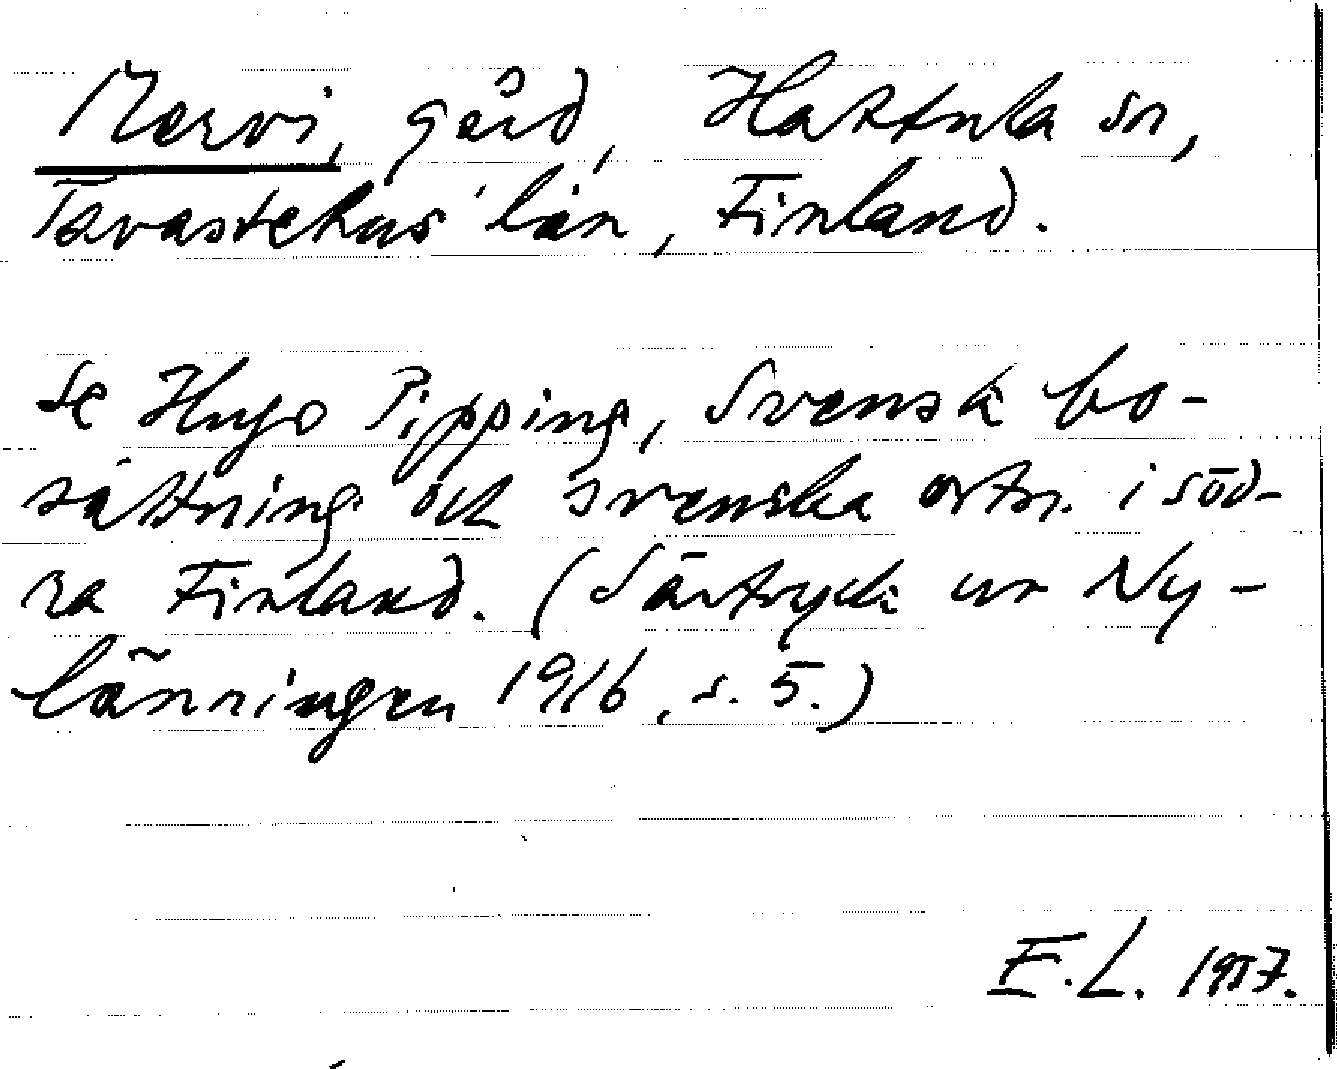 Mervi, gård, Hattula sn,
Tavastehus län, Finland.
Se Hugo Pipping, Svensk bo-
sättning och svenska ortn. i söd-
ra Finland. (Särtryck ur Ny-
länningen 1916, s. 5.)
E.L. 1957.